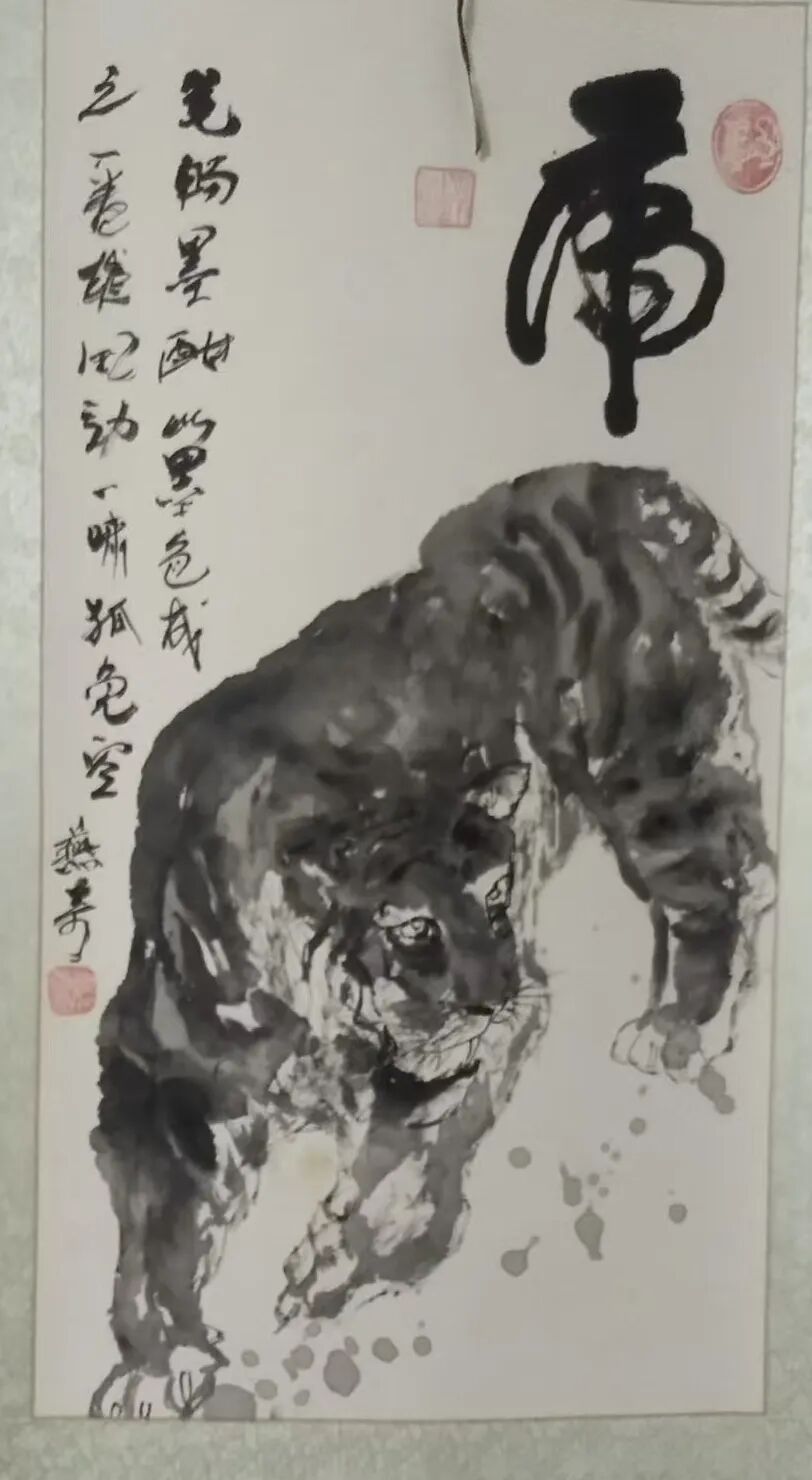 虎
笔畅墨酣此墨色成
之一番雄风动一啸狐兔空
燕